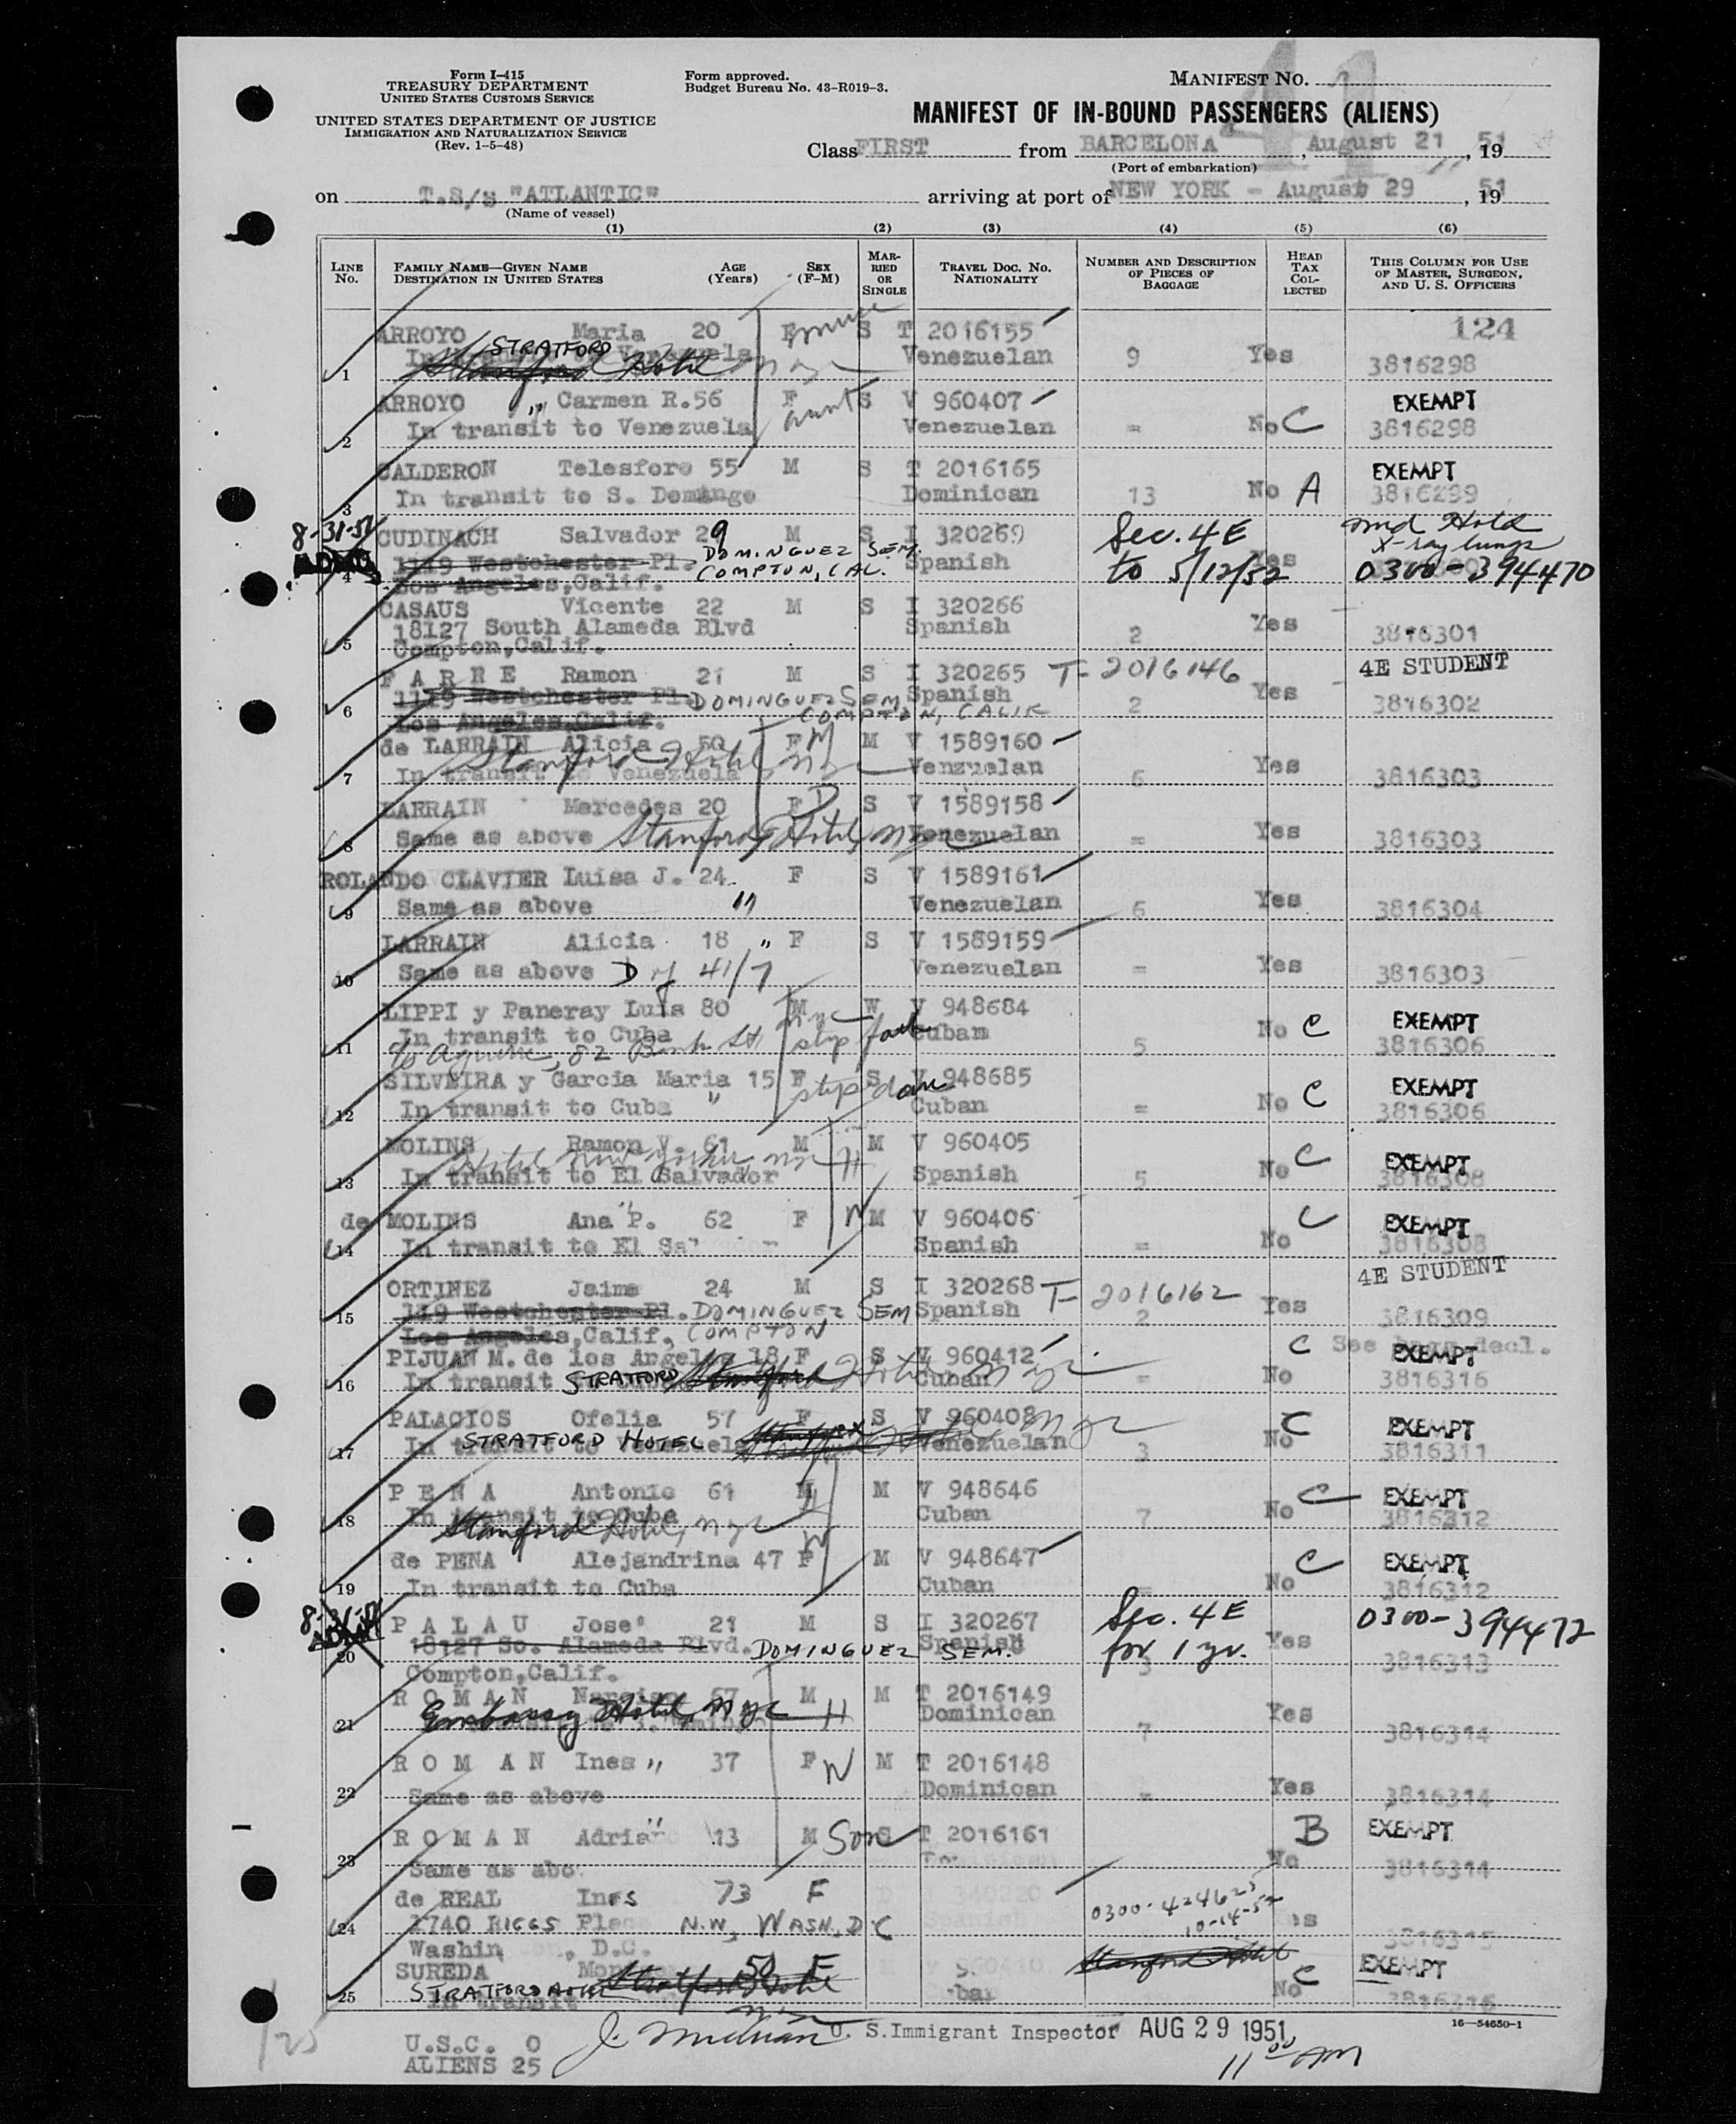 Form I-415
TREASURY DEPARTMENT
UNITED STATES CUSTOMS SERVICE
UNITED STATES DEPARTMENT OF JUSTICE
IMMIGRATION AND NATURALIZATION SERVICE
(Rev. 1-5-48)
Form approved.
Budget Bureau No. 43-R019-3.
MANIFEST NO.
41
MANIFEST OF IN-BOUND PASSENGERS (ALIENS)
Class FIRST from BARCELONA, August 21, 1951
(Port of embarkation)
on T.S/S "ATLANTIC" arriving at port of NEW YORK - August 29, 1951
(Name of vessel)
(1) (2) (3) (4) (5) (6)
LINE NO. FAMILY NAME—GIVEN NAME DESTINATION IN UNITED STATES AGE (Years) SEX (F-M) MARRIED OR SINGLE TRAVEL DOC. NO. NATIONALITY NUMBER AND DESCRIPTION OF PIECES OF BAGGAGE HEAD TAX COLLECTED THIS COLUMN FOR USE OF MASTER, SURGEON, AND U. S. OFFICERS
ARROYO Maria 20 F S T 2016155 124
STRATFORD
1 In transit to Venezuela Hotel Venezuelan 9 Yes 3816298
ARROYO " Carmen R. 56 F aunt S V 960407 EXEMPT
2 In transit to Venezuela Venezuelan = No C 3816298
CALDERON Telesforo 55 M S T 2016165 EXEMPT
3 In transit to S. Domingo Dominican 13 No A 3816299
8-31-51 CUDINACH Salvador 29 M S I 320269 Sec. 4E Med Hold
X-ray lungs
4 1149 Westchester Pl. DOMINGUEZ SEM. Spanish to 5/12/52 Yes 0300-394470
Los Angeles, Calif. COMPTON, CAL.
CASAUS Vicente 22 M S I 320266
5 18127 South Alameda Blvd Spanish 2 Yes 3816301
Compton, Calif.
FARRE Ramon 21 M S I 320265 T-2016146 4E STUDENT
6 1149 Westchester Pl. DOMINGUEZ SEM, Spanish 2 Yes 3816302
Los Angeles, Calif. COMPTON, CALIF
de LARRAIN Alicia 50 F M M V 1589160
7 In transit to Venezuela Stanford Hotel, NYC Venzuelan 6 Yes 3816303
LARRAIN Mercedes 20 F D S V 1589158
8 Same as above Stanford Hotel, NYC Venezuelan = Yes 3816303
ROLANDO CLAVIER Luisa J. 24 F S V 1589161
9 Same as above " Venezuelan 6 Yes 3816304
LARRAIN Alicia 18 " F S V 1589159
10 Same as above D of 41/7 Venezuelan = Yes 3816303
LIPPI y Paneray Luis 80 M W V 948684 EXEMPT
11 In transit to Cuba step fath Cuban 5 No C 3816306
82 Bank St. NYC
SILVEIRA y Garcia Maria 15 F S V 948685 EXEMPT
12 In transit to Cuba " step dau Cuban = No C 3816306
MOLINS Ramon V. 61 M H M V 960405 C EXEMPT
Hotel New Yorker, NYC
13 In transit to El Salvador Spanish 5 No 3816308
de MOLINS Ana P. 62 F W M V 960406 C EXEMPT
14 In transit to El Sa Spanish = No 3816308
ORTINEZ Jaime 24 M S I 320268 T-2016162 4E STUDENT
15 119 Westchester Pl. DOMINGUEZ SEM Spanish 2 Yes 3816309
Los Angeles, Calif. COMPTON
C See bagg. decl.
PIJUAN M. de los Angeles 18 F S V 960412 EXEMPT
16 In transit STRATFORD Hotel NYC Cuban = No 3816316
PALACIOS Ofelia 57 F S V 960408 NYC C EXEMPT
17 In transit to Venezuela STRATFORD HOTEL Venezuelan 3 No 3816311
PENA Antonio 61 M H M V 948646 C EXEMPT
18 In transit to Cuba Stanford Hotel, NYC Cuban 7 No 3816312
de PENA Alejandrina 47 F W M V 948647 C EXEMPT
19 In transit to Cuba Cuban = No 3816312
PALAU Jose 21 M S I 320267 Sec. 4E 0300-394472
20 18127 So. Alameda Blvd. DOMINGUEZ SEM. Spanish for 1 yr. 3 Yes 3816313
Compton, Calif.
ROMAN Narciso 67 M M T 2016149
21 Embassy Hotel, NYC H Dominican 7 Yes 3816314
ROMAN Ines " 37 F W M T 2016148
22 Same as above Dominican = Yes 3816314
ROMAN Adrian " 13 M Son S T 2016161 B EXEMPT
23 Same as abo No 3816314
de REAL Ines 73 F
24 1740 RIGGS Place N.W, WASH. D C 10-14-52 3816315
Washin , D.C.
SUREDA 50 F Stanford Hotel C EXEMPT
25 STRATFORD HOTEL In transit No 3816316
16—54650-1
U.S.C. 0
ALIENS 25
U. S. Immigrant Inspector AUG 29 1951
11 00 AM
125